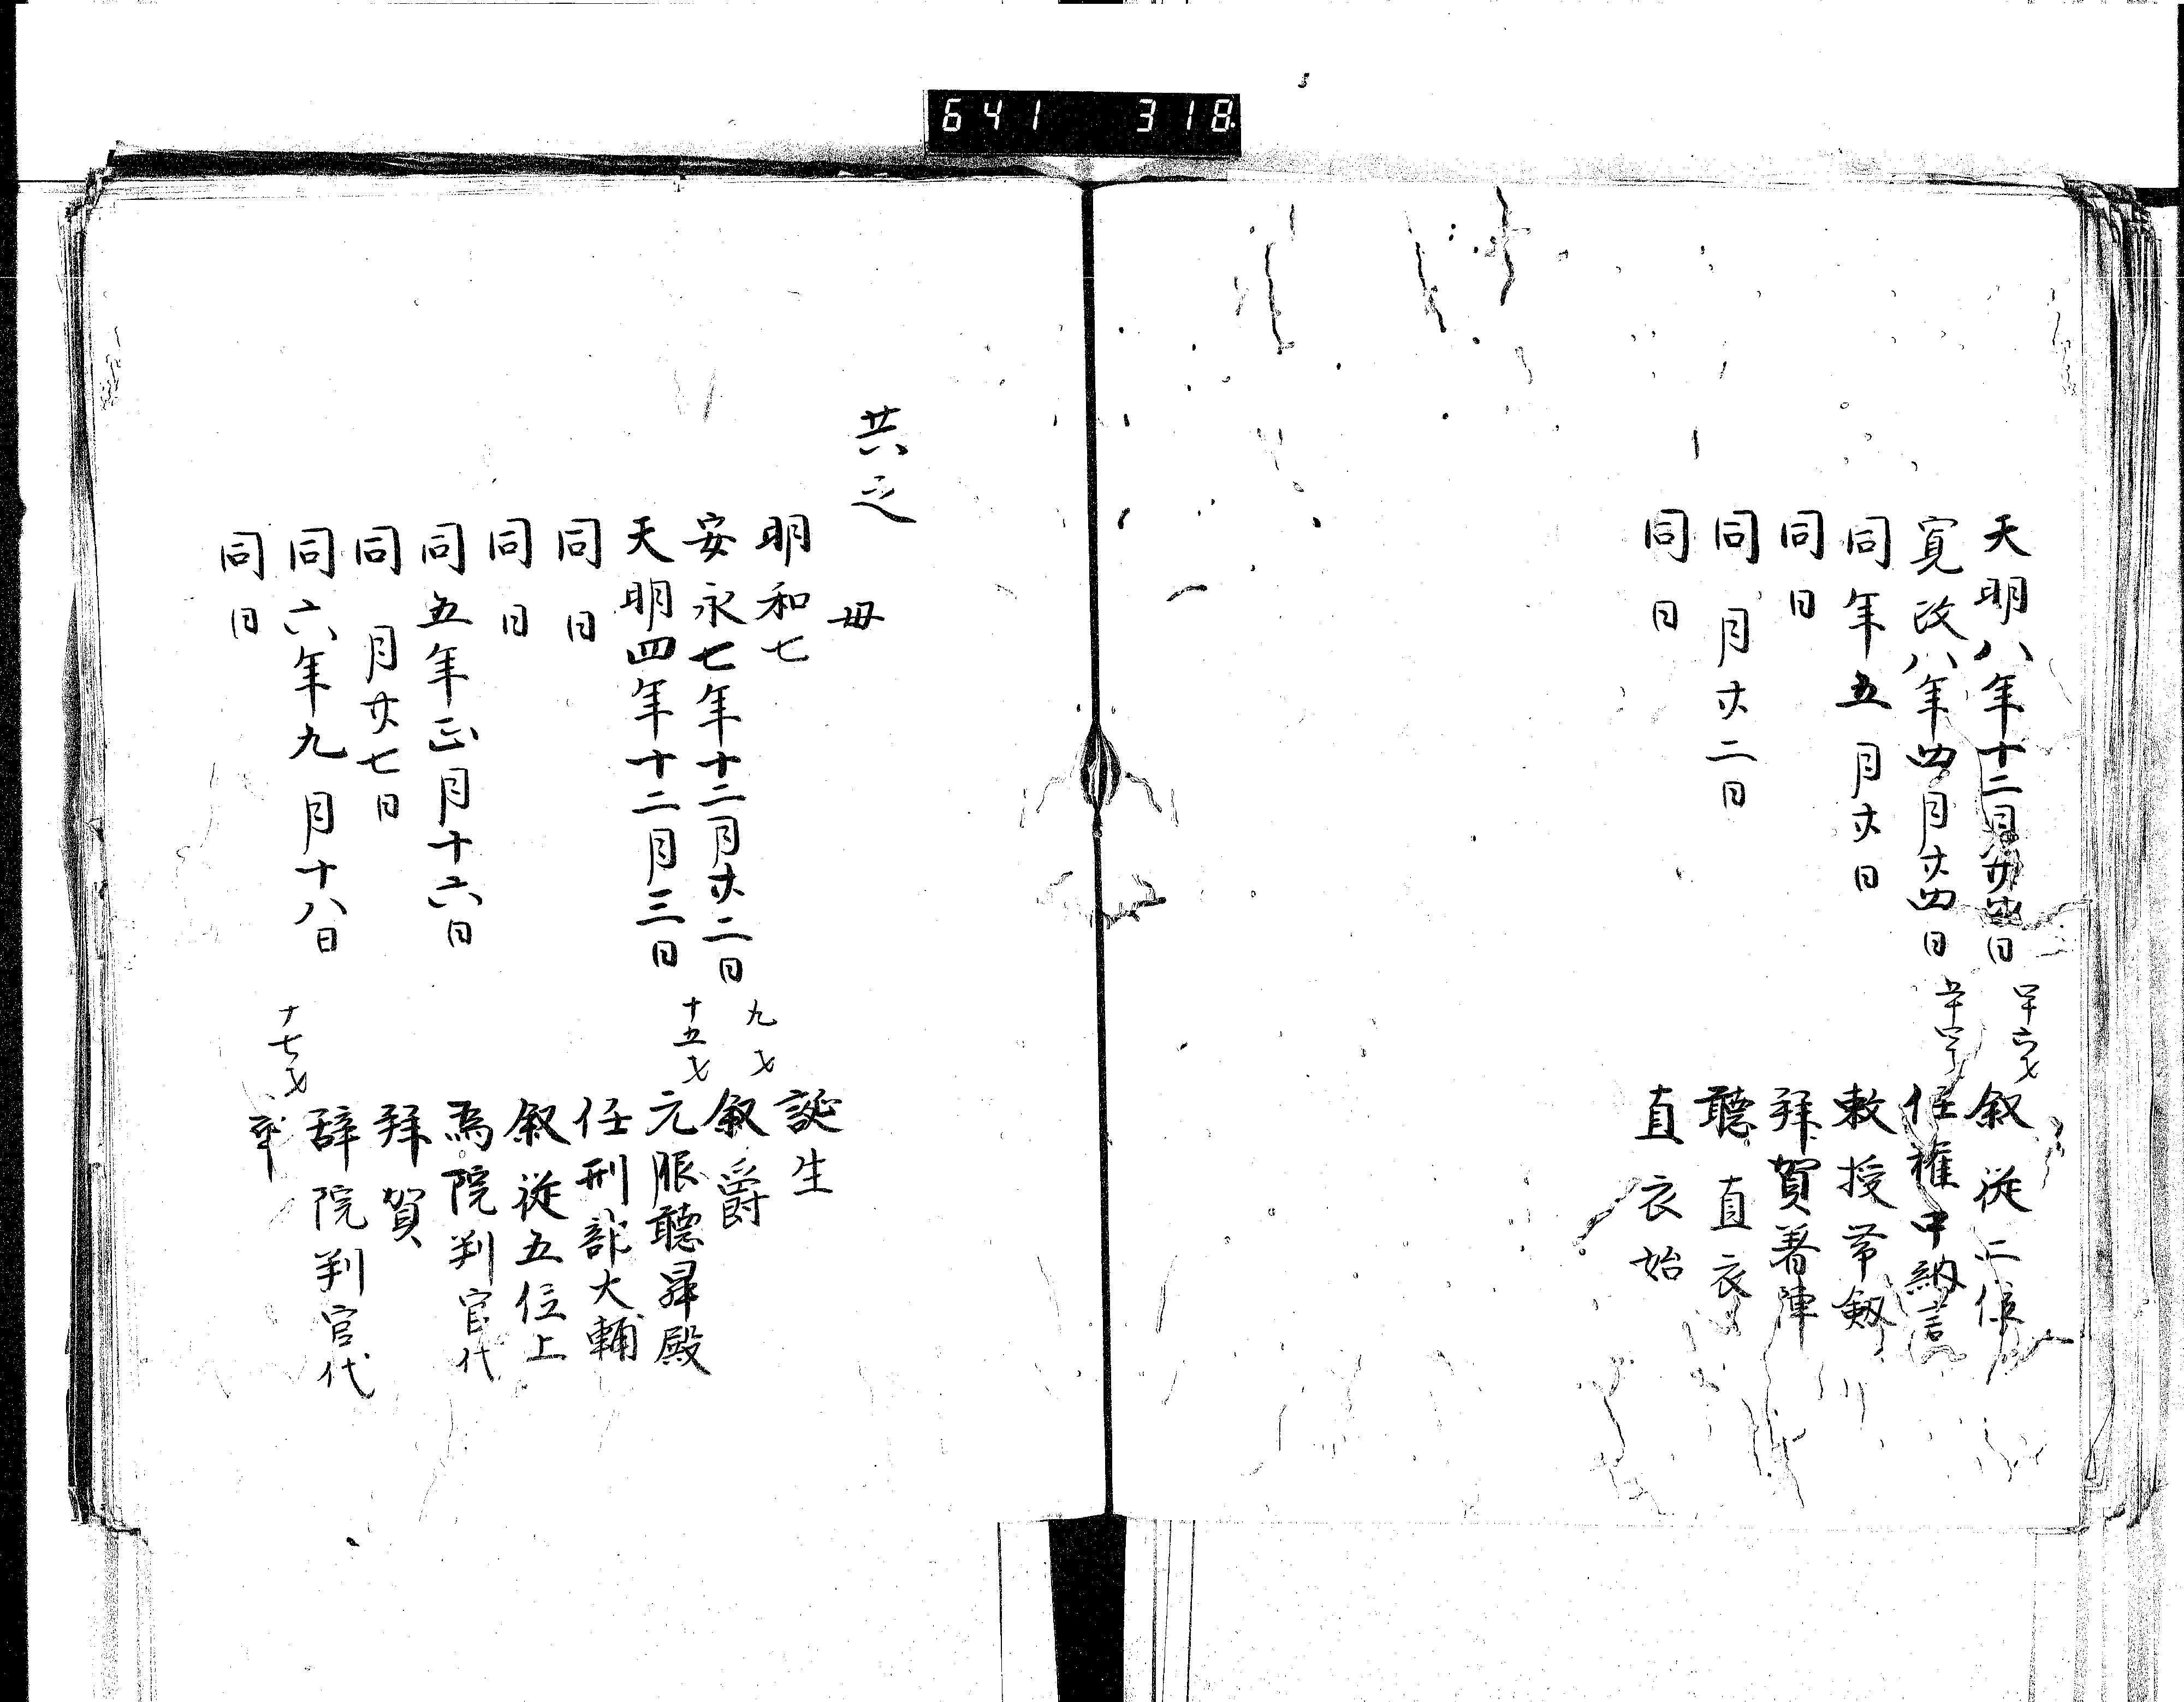 641 318
天明八年十二月廿四日 四十六才 叙従二位
寛政八年四月廿四日 五十四才 任権中納言
同年五月廿日 敕授帯劔
同日 拜賀着陣
同月廿二日 聴直衣
同日 直衣始
共之
母
明和七 誕生
安永七年十二月廿二日 九才 叙爵
天明四年十二月三日 十五才 元服聴昇殿
同日 任刑部大輔
同日 叙従五位上
同五年正月十六日 為院判官代
同月廿七日 拜賀
同六年九月十八日 十七才 辞院判官代
同日 卒